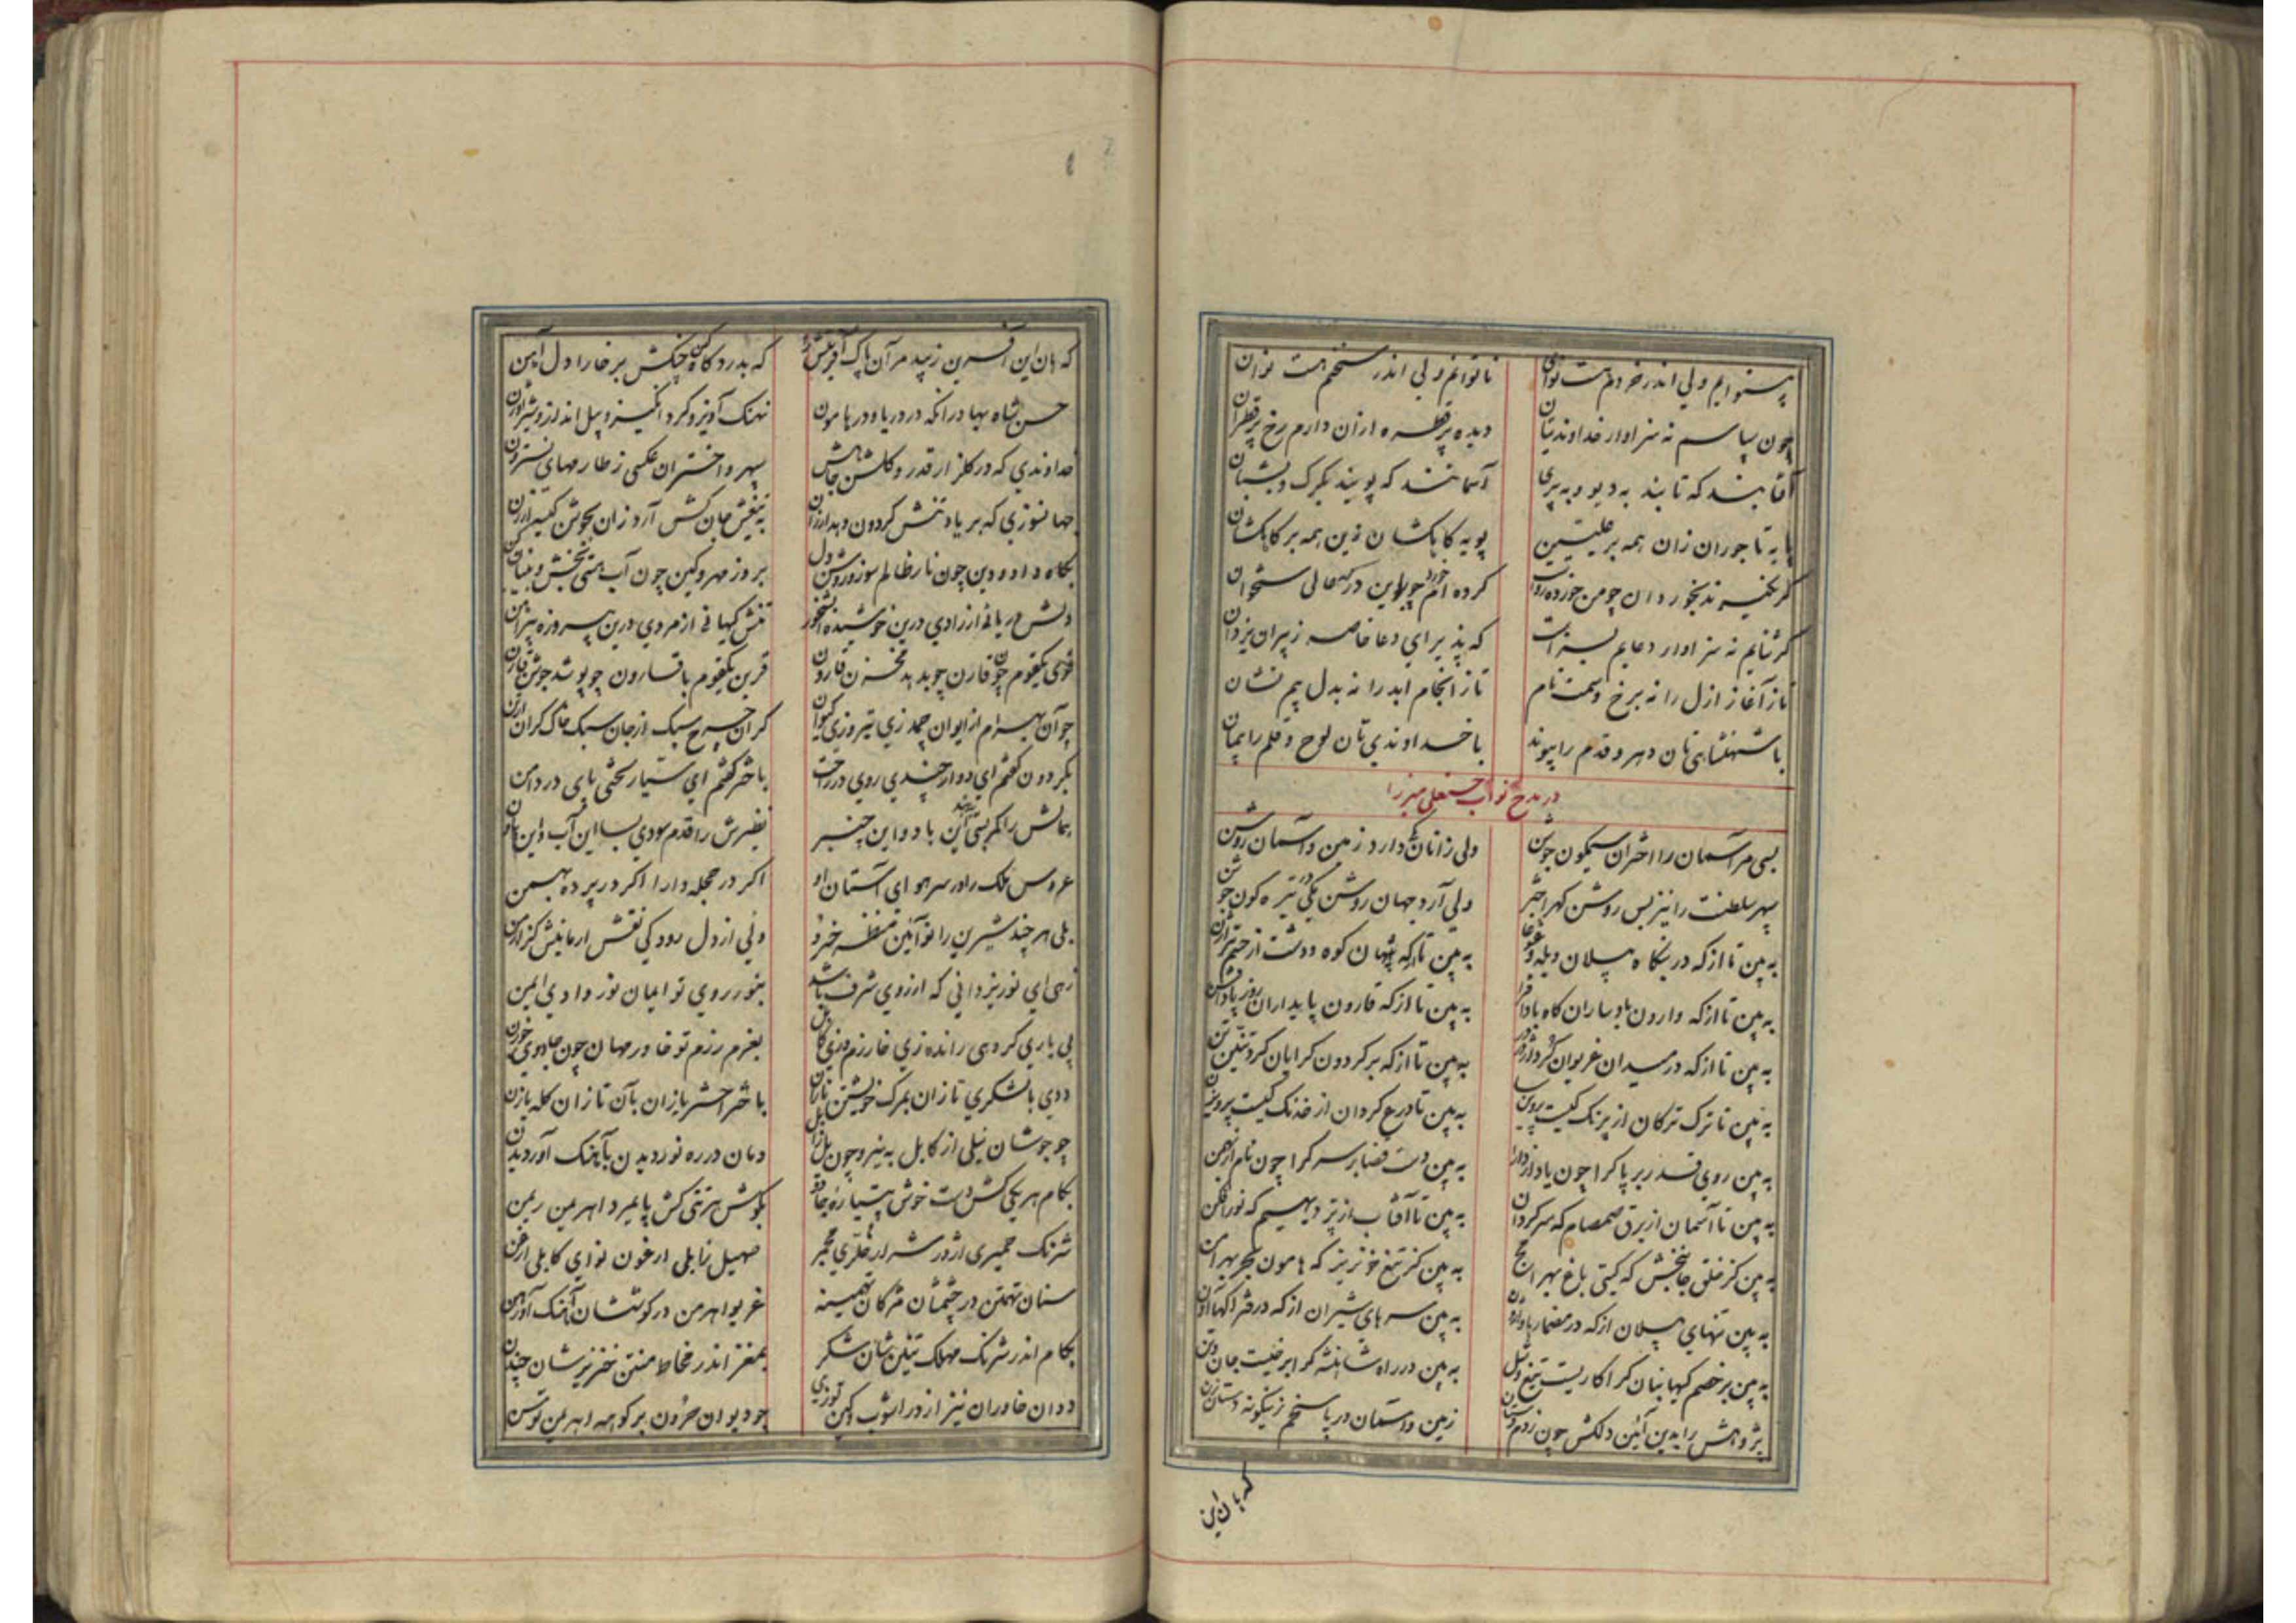 پرستوایم ولی اندر خردم هست توان ناتوانم ولی اندر سخنم هست توان
چون سپاسم نه سزاوار خداوندیتان دیده پر قطره ازان دارم رخ پر قطران
آفتابند که تابند به دیو و به پری آسمانند که پویند بگرگ و بشبان
پایه تا جوران زان همه بر علیین پویه کاهکشان زین همه بر کاهکشان
گر نگیرند بخور دان چو من خورده کرده ام خورد چو بر این در که عالی ستخوان
گر ثنایم نه سزاوار دعایم بسزاست که پذیرای دعا خاصه ز پیران یزدان
تاز آغاز ازل را نه برخ وسمت نام تاز انجام ابد را نه بدل بیم نشان
با شهنشاهی تان دهر و قدم را پیوند با خداوندی تان لوح و قلم را پیمان
در مدح نواب حسنعلی میرزا
بسی مر آسمان را اختران سیمگون جوشن ولی زانان یکی دارد زمین و آسمان روشن
سپهر سلطنت را نیز بس روشن گهر اختر ولی آرد جهان روشن یکی در تیره گون جوشن
به بین تا از که در بنگاه پیلان ویله و غوغا به بین تا از که پنهان کوه و دشت از خسم
به بین تا از که وارون بادساران گاه باد افرا به بین تا از که قارون پایداران روز پاداشن
به بین تا از که در میدان غریوان گرد به بین تا از که بر گردون گرایان گرد
به بین تا ترک ترکان از پرنگ کیست پروین سا به بین تا درع گردان از خدنگ کیست پرویزن
به بین روی قدر بر پا کرا چون یاد از دارا به بین دست قضا بر سر کرا چون نام از بهمن
به بین تا آسمان از برق صمصام که سرگردان به بین تا آفتاب از ترک دیهیم که نورافکن
به بین کز خلق جانبخش که گیتی باغ بهرامج به بین کز تیغ خونریز که هامون بحر بهرامن
به بین تنهای پیلان از که در مضمار به بین سرهای شیران از که در فتراکها
به بین بر خصم کیهانبان کرا کاریست تیغ و به بین در راه شاهنشه کرا برخیست جان و تن
پژوهش را بدین آئین دلکش چون زدم دستان زمین و آسمان در پاسخم زینگونه دستان زن
که هان این
که هان این آفرین زیبد مر آن پاک آفرینش را که بدرد گاه کین چنگش بر خارا دل آهن
حسن شاه بهادر آنکه در دریا و در هامون نهنگ آویز و گرد انگیز و پیل انداز و شیر اوژن
خداوندی که در گلزار قدر و گلشن جاهش سپهر و اختران عکسی ز طارمهای نسترون
جهانسوزی که بر باد تنش گردون دهد ارزان به تیغش جان کش آرد زان بجوشن
بگاه داد و دین چون نار ظالم سوز و روشن دل بروز مهر و کین چون آب هستی بخش و بنیان کن
دلش دریائی از رادی درین خوشیده تنش کیهانی از مردی درین پیروزه پیراهن
قوی یکقوم چون قارن چو بدهد مخزن قارون قرین یکقوم با قارون چو پوشد جوشن قارن
چو آن بهرام از ایوان چمد زی تیر وزی کیوان گران چرخ سبک از جان سبک خاک گران از تن
بگردون گفتم ای دوار چندی روی در رخت باختر گفتم ای سیار لختی پای در دامن
همالش را کمر بستی آین باد و این چنبر نظیرش را قدم سودی بسا این آب و این هاون
عروس ملک را در سر هوای آستان او اگر در حجله دارا اگر در پرده بهمن
بلی هر چند شیرین را نو آئین منظر خسرو ولی از دل رود کی نقش ارمانیش
زهی ای نور یزدانی که از روی شرف باشد بنور روی تو ایمان نور وادی ایمن
پی یاری گروهی رانده زی خارزم بعزم رزم تو خاور مهان چون
ددی با لشکری تازان بمرگ خویشتن نازان باختر اختر بازان بآن تازان گله یازن
چو جوشان نیلی از کابل به نیرو چون یل زابل دمان در ره نوردیدن بآهنگ آوردیدن
بکام هر یکی کش دست خوش پتیاره جادو بکوشش هر تنی کش پایمرد اهریمن ریمن
شرنگ حمیری اژدر شرارها حنجر صهیل زابلی ارغون نوای کابلی ارغن
سنان تهمتن در چشمشان مژگان تهمینه غریو اهرمن در گوششان آهنگ
بکام اندر شرنگ مهلک تنین شان شکر بمغز اندر مخاط منتن خنزیرشان چندن
ددان خاوران نیز از در آشوب و کین توزی چو دیوان حرون بر کوهه اهریمن توسن